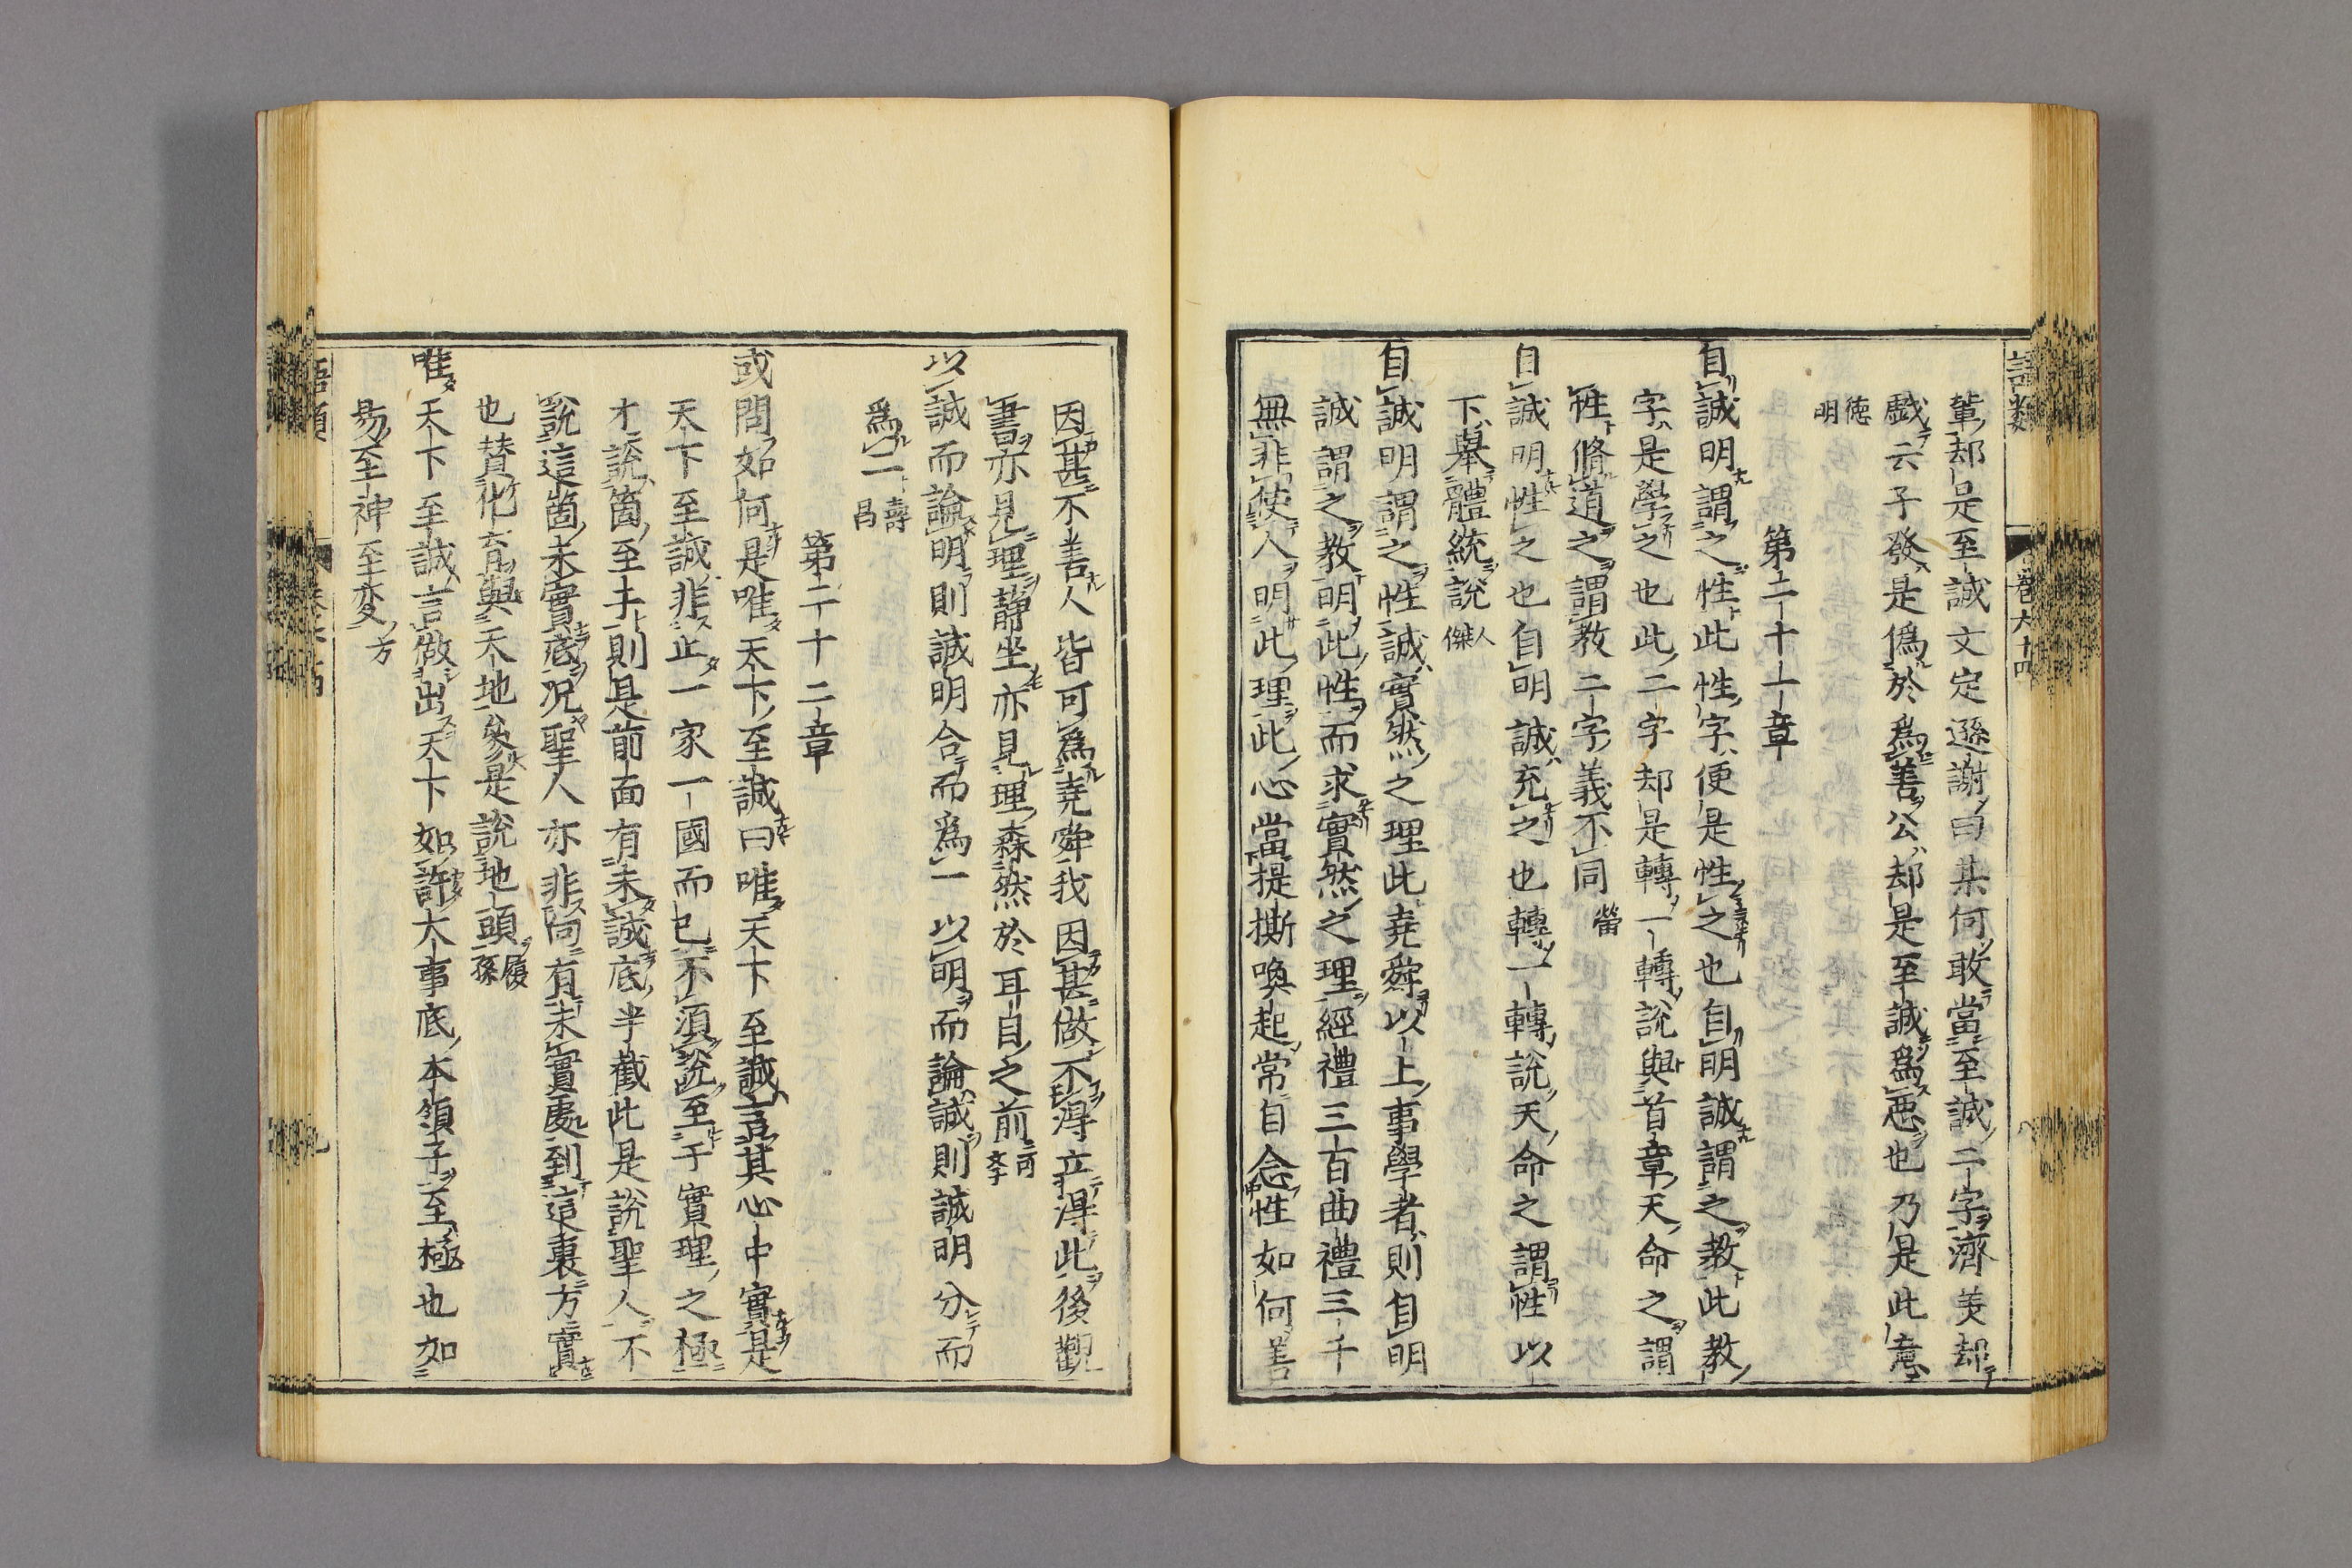 語類 卷六十四
輩却是至誠文定遜謝曰某何敢當至誠二字濟美却
戯云子發是僞於爲善公却是至誠爲惡也乃是此意
德明
第二十一章
自誠明謂之性此性字便是性之也自明誠謂之教此教
字是學之也此二字却是轉一轉說與首章天命之謂
性脩道之謂教二字義不同 㽦
自誠明性之也自明誠充之也轉一轉說天命之謂性以
下舉體統說 人傑
自誠明謂之性誠實然之理此堯舜以上事學者則自明
誠謂之教明此性而求實然之理經禮三百曲禮三千
無非使人明此理此心當提撕喚起常自念性如何善
因甚不善人皆可爲堯舜我因甚做不得立得此後觀
書亦見理靜坐亦見理森然於耳目之前 可學
以誠而論明則誠明合而爲一以明而論誠則誠明分而
爲二 壽昌
第二十二章
或問如何是唯天下至誠曰唯天下至誠言其心中實是
天下至誠非止一家一國而已不須說至于實理之極
才說箇至于則是前面有未誠底半截此是說聖人不
說這箇未實底况聖人亦非向有未實處到這裏方實
也贊化育與天地參是說地頭 履孫
唯天下至誠言做出天下如許大事底本領子至極也如
易至神至変 方
語類